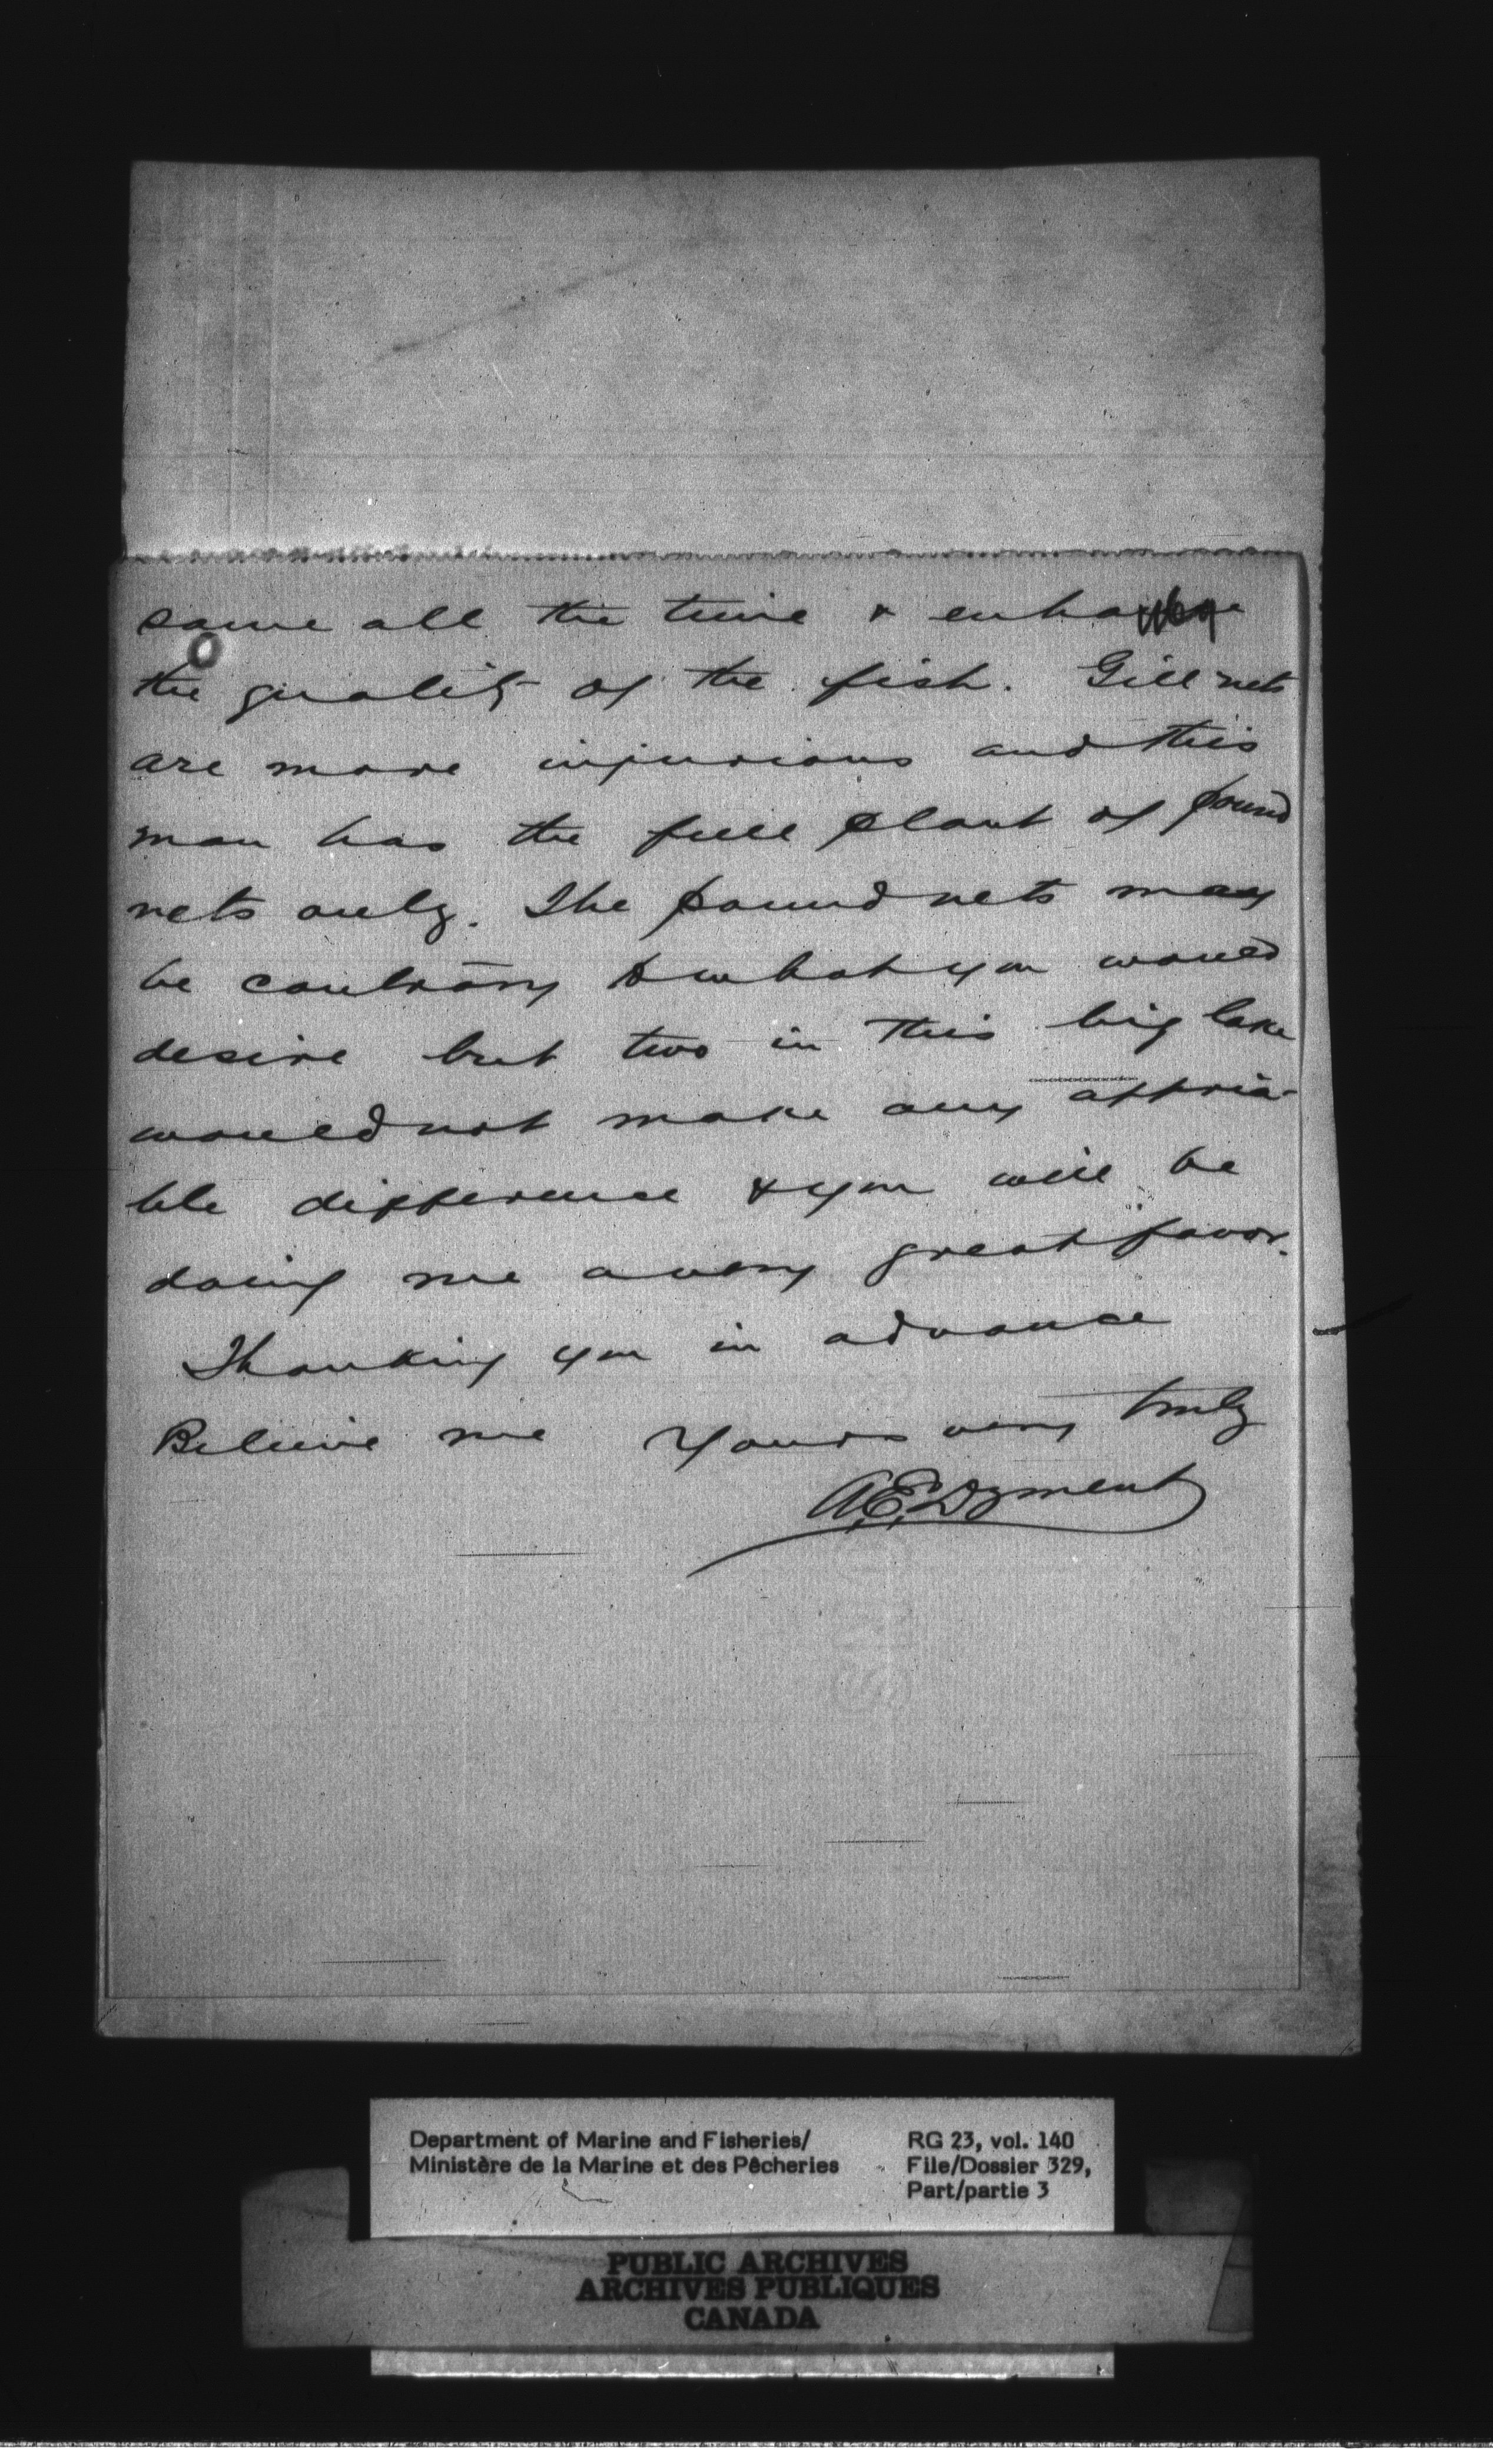 same all the time & enhance
the quality of the fish. Gill nets
are more injurious and this
man has the full plant of pound
nets only. The pound nets may
be contrary to what you would
desire but two in this big lake
would not make any appria-
ble difference & you will be
doing me a very great favor.
Thanking you in advance
Believe me Yours very truly
A.E. Dyment
Department of Marine and Fisheries/
Ministère de la Marine et des Pêcheries
RG 23, vol. 140
File/Dossier 329,
Part/partie 3
PUBLIC ARCHIVES
ARCHIVES PUBLIQUES
CANADA